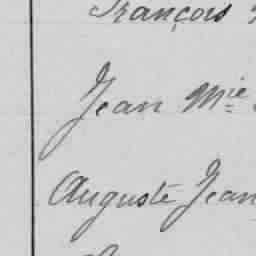 François
Jean Mie
Auguste Jean